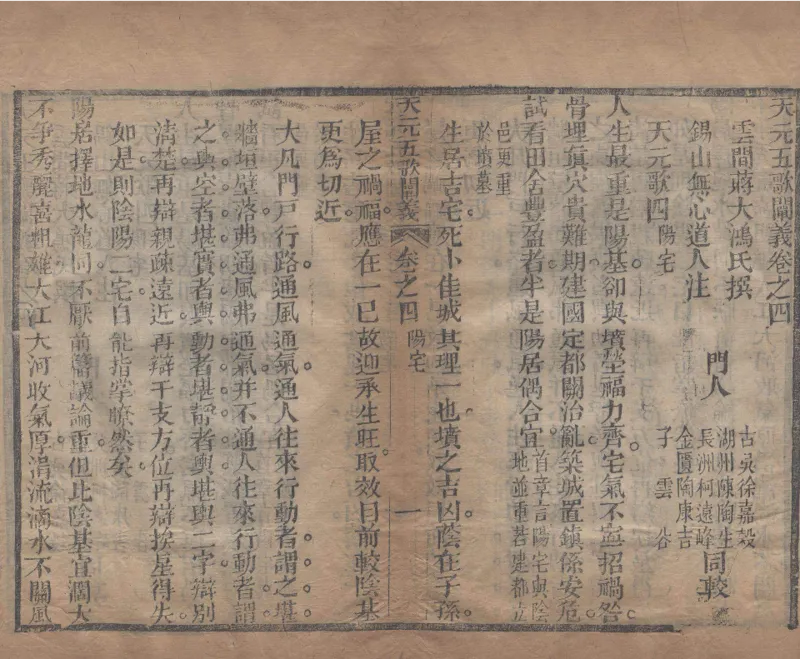 天元五歌闡義卷之四
雲間蔣大鴻氏撰
錫山無心道人注
門人
古吳徐嘉穀
湖州陳陶生
長洲柯遠峰
金匱陶康吉
子雲谷
同較
天元歌四 陽宅
人生最重是陽基卻與墳塋福力齊宅氣不寧招禍咎
骨埋真穴貴難期建國定都關治亂築城置鎮係安危
試看田舍豐盈者半是陽居偶合宜 首章言陽宅與陰
地並重若建都立
邑更重
於墳墓
生居吉宅死卜佳城其理一也墳之吉凶蔭在子孫
屋之禍福應在一己故迎承生旺取效目前較陰基
天元五歌闡義 卷之四 陽宅 一
更為切近
大凡門戶行路通風通氣通人往來行動者謂之堪
牆垣壁落弗通風弗通氣并不通人往來行動者謂
之輿空者堪實者輿動者堪靜者輿堪輿二字辯別
清楚再辯親疎遠近再辯干支方位再辯挨星得失
如是則陰陽二宅自能指掌瞭然矣
陽居擇地水龍同不厭前賢議論重但比陰基宜濶大
不爭秀麗喜粗雄大江大河收氣厚涓流滴水不關風